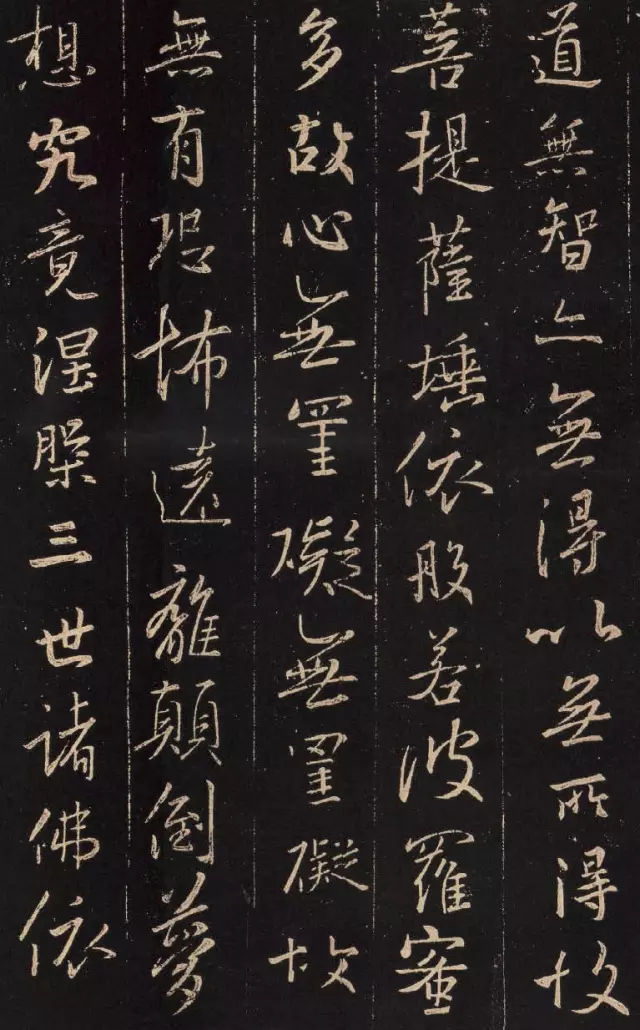 道無智亦無得以無所得故
菩提薩埵依般若波羅蜜
多故心無罣礙無罣礙故
無有恐怖遠離顛倒夢
想究竟涅槃三世諸佛依